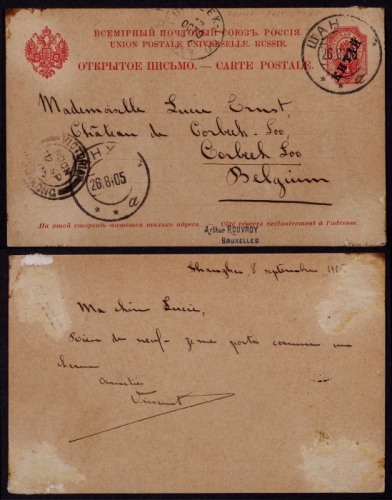 ВСЕМІРНЫЙ ПОЧТОВЫЙ СОЮЗЪ. РОССІЯ.
UNION POSTALE UNIVERSELLE. RUSSIE.
ОТКРЫТОЕ ПИСЬМО. — CARTE POSTALE.
ШАН
26.8.05
а
КИТАЙ
Mademoiselle Lucie Ernst,
Château de Corbeek-Loo,
Corbeek Loo
Belgium
VICTORIA
HONG
26.8.05
а
На этой сторонѣ пишется только адресъ. — Côté réservé exclusivement à l'adresse.
Arthur ROUVROY
BRUXELLES
Shanghai 8 septembre, 1905
Ma chère Lucie,
Rien de neuf. Je me porte comme un
charme
Amitiés
Vincent